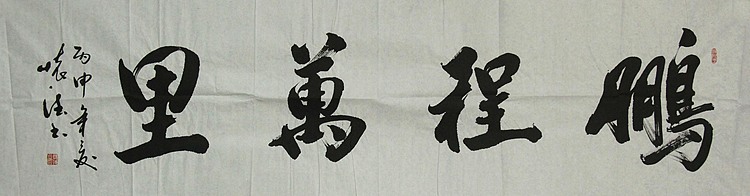 鵬程萬里
丙申年夏